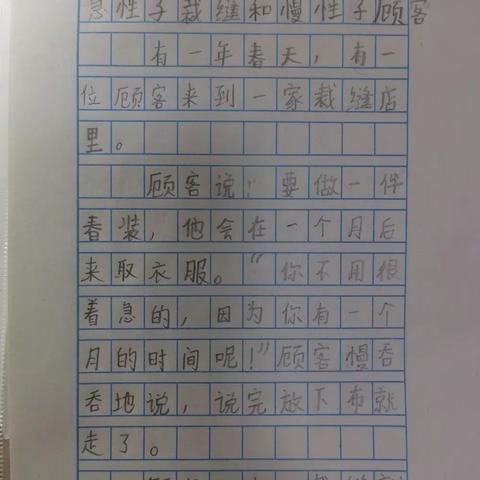 急性子裁缝和慢性子顾客
有一年春天，有一
位顾客来到一家裁缝店
里。
顾客说！要做一件
春装，他会在一个月后
来取衣服。“你不用很
着急的，因为你有一个
月的时间呢！”顾客慢吞
吞地说，说完放下布就
走了。